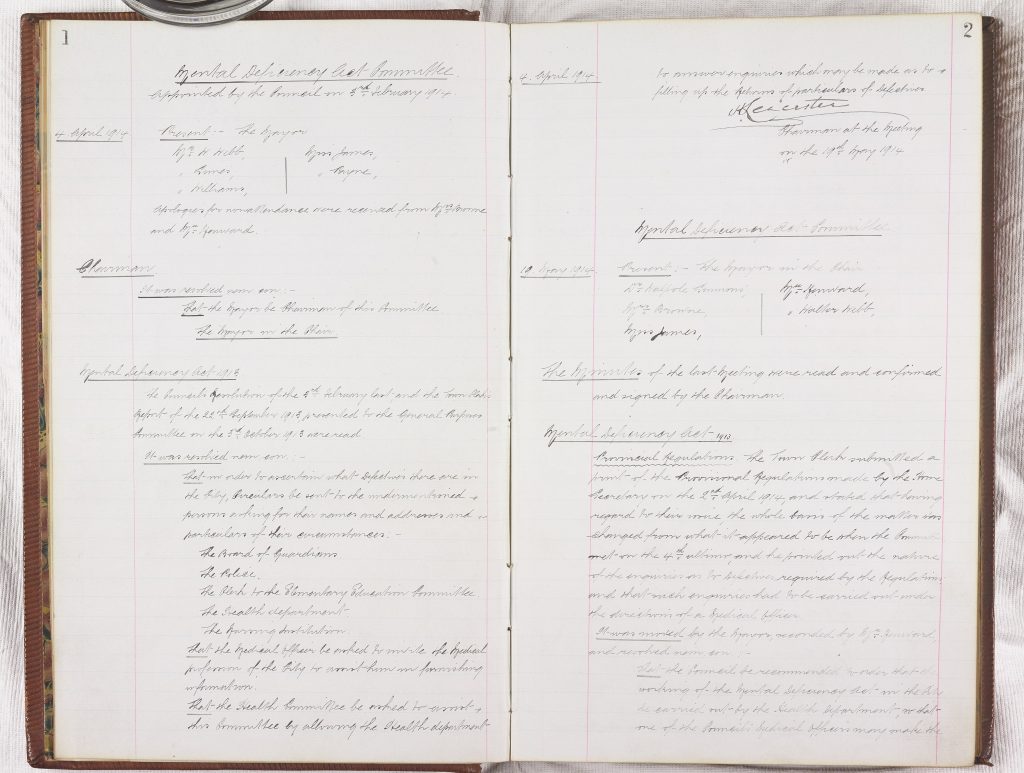 1
Mental Deficiency Act Committee.
Appointed by the Council on 5th February 1914.
4 April 1914
Present :- The Mayor
Mr W Webb,
Mrs James,
" Payne,
" Williams,
Apologies for nonattendance were received from Mrs Browne
and Mr Kenward.
Chairman
It was resolved nem con :-
That the Mayor be Chairman of this Committee
The Mayor in the Chair.
Mental Deficiency Act 1913
The Council's Resolution of the 5th February last and the Town Clerk's
Report of the 22nd September 1913 presented to the General Purposes
Committee on the 3rd October 1913 were read
It was resolved nem con :-
That in order to ascertain what Defectives there are in
the City, Circulars be sent to the undermentioned
persons asking for their names and addresses and
particulars of their circumstances :-
The Board of Guardians
The Police.
The Clerk to the Elementary Education Committee.
The Health department.
The Nursing Institution.
That the Medical Officer be asked to invite the Medical
profession of the City to assist him in furnishing
information.
That the Health Committee be asked to assist
this Committee by allowing the Health department
2
4 April 1914
to answer enquiries which may be made as to
filling up the Returns of particulars of Defectives
Chairman at the Meeting
on the 19th May 1914
Mental Deficiency Act Committee
19 May 1914
Present :- The Mayor in the Chair
Mrs Browne
Miss James,
Mr Kenward,
" Walter Webb,
The Minutes of the last Meeting were read and confirmed
and signed by the Chairman
Mental Deficiency Act 1913
Provincial Regulations. The Town Clerk submitted a
print of the Provisional Regulations made by the Home
Secretary on the 2nd April 1914 and stated that having
regard to their issue, the whole basis of the matter was
changed from what it appeared to be when the Committee
met on the 4th ultimo, and he pointed out the nature
of the enquiries as to Defectives required by the Regulations
and that such enquiries had to be carried out under
the directions of a Medical Officer.
It was moved by the Mayor, seconded by Mr Kenward
and resolved nem con :-
That the Council be recommended to order that the
working of the Mental Deficiency Act in the City
be carried out by the Health Department so that
one of the Council's Medical Officers may make the